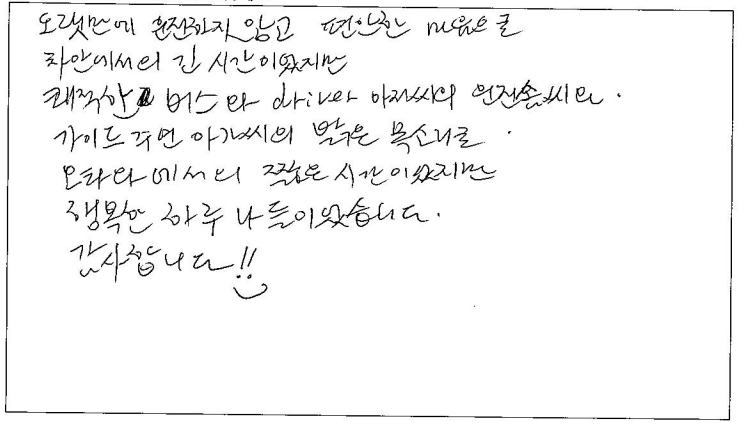 오랫만에 운전하지 않고 편안한 마음으로
차안에서의 긴 시간이었지만
쾌적한 버스와 driver 아저씨의 운전솜씨와.
가이드 주연 아가씨의 맑은 목소리로.
오타와에서의 짧은 시간이었지만
행복한 하루 나들이였습니다.
감사합니다!!